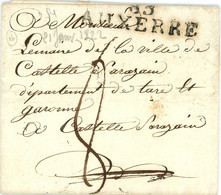 83
AUXERRE
A Monsieur
Lemaire de la ville de
Castelle Sarazain
département de tare et
garonne
a Castelle Sarazain
8